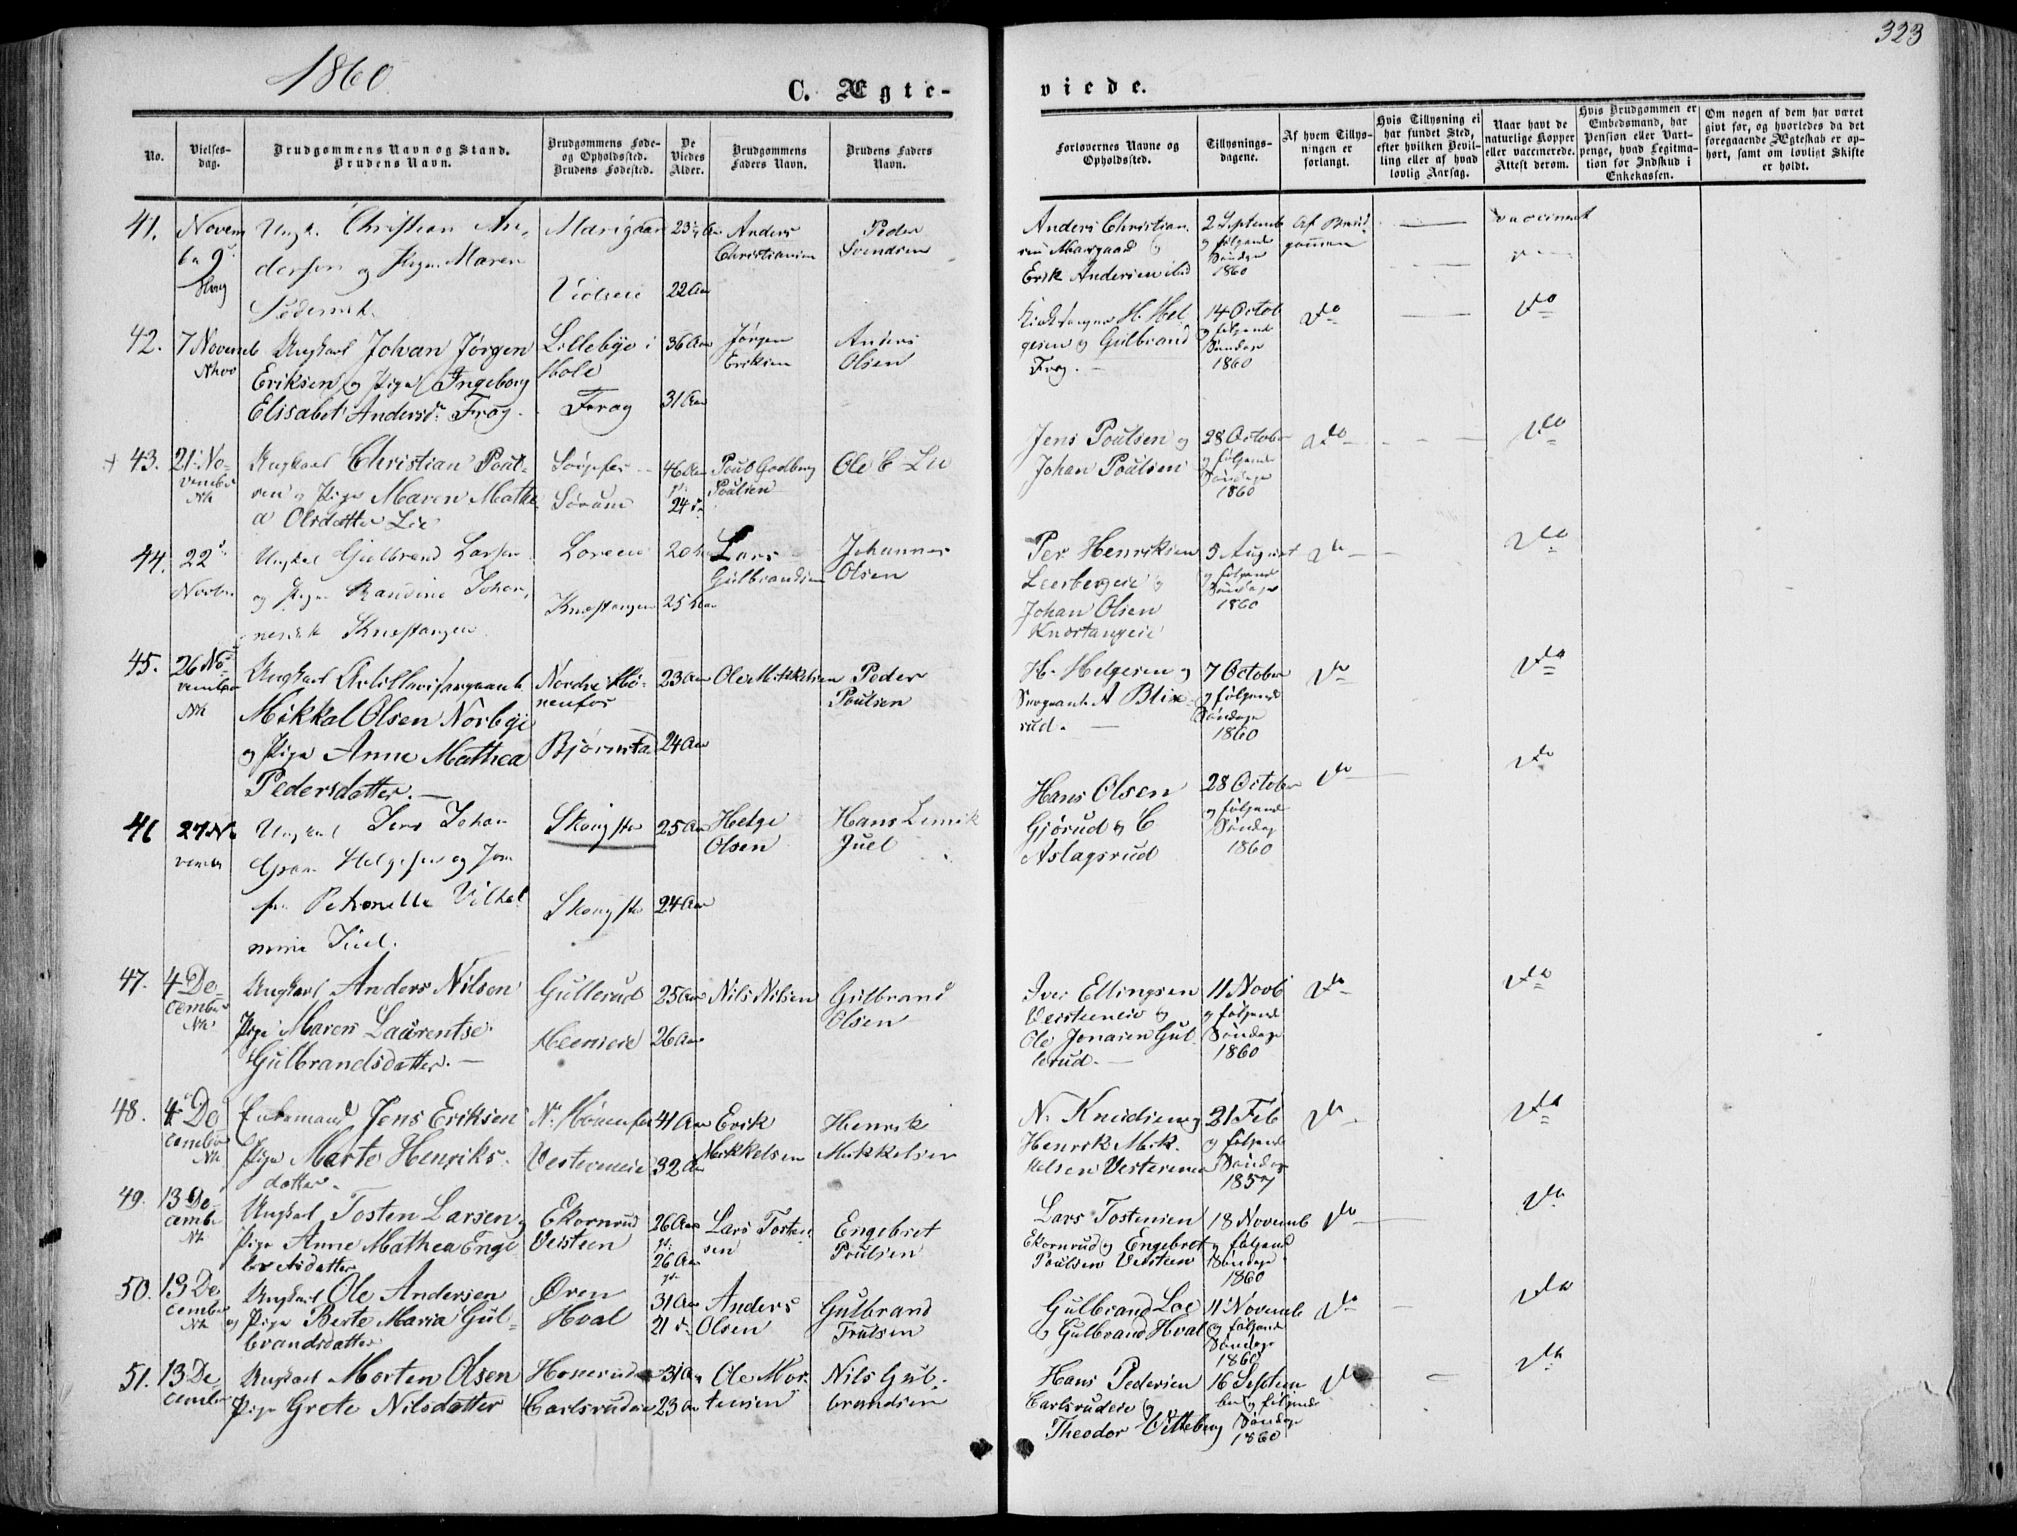 1860.
323
C. Ægte-
viede.
No.
Vielses-
dag.
Brudgommens Navn og Stand.
Brudens Navn.
Brudgommens Føde-
og Opholdssted.
Brudens Fødested.
De
Viedes
Alder.
Brudgommens
Faders Navn.
Brudens Faders
Navn.
Forlovernes Navne og
Opholdssted.
Tillysnings-
dagene.
Af hvem Tillys-
ningen er
forlangt.
Hvis Tillysning ei
har fundet Sted,
efter hvilken Bevil-
ling eller af hvad
lovlig Aarsag.
Naar havt de
naturlige Kopper
eller vaccinerede.
Attest derom.
Hvis Brudgommen er
Embedsmand, har
Pension eller Vart-
penge, hvad Legitima-
tion for Indskud i
Enkekassen.
Om nogen af dem har været
givt før, og hvorledes da det
foregaaende Ægteskab er op-
hørt, samt om lovligt Skifte
er holdt.
41.
Novem
9
Christian An-
dersen og Pige Maren
23
22 Aar
Anders
Christiansen
Peder
Svendsen
Anders Christian
Erik Andersen
2 Septemb
og følgende
Søndage
1860
Af Brud
gommen
vaccineret
42.
7 Novemb
Ungkarl Johan Jørgen
Eriksen og Pige Ingeborg
Elisabet Andersd. Frog.
Lillebye i
Hole
Frog
36 Aar
31 Aar
Jørgen
Eriksen
Anders
Olsen
H. Hel
gesen og Gulbrand
Frog.
14 Octob
og følgende
Søndage
1860
do
do
43.
21 No-
vember
Ungkarl Christian Poul-
sen og Pige Maren Mathe
a Olsdatter Lie
46 Aar
24 d
Poul Godberg
Poulsen
Ole C Lie
Jens Poulsen og
Johan Poulsen
28 October
og følgende
Søndage
1860
do
do
44.
22
Novbr.
Ungkal Gulbrand Larsen
og Pige Randine Johan-
Knestangen
Knestangen
20
25
Lars
Gulbrandsen
Johannes
Olsen
Per Henriksen
Leerbergeie og
Johan Olsen
Knestangeie
5 August
og følgende
Søndage
1860
do
do
45.
26 No-
vember
Ungkarl Artillerisergeant
Mikkal Olsen Norbye
og Pige Anne Mathea
Pedersdatter.
Nordre Hø-
nenfos
Bjørnstad
23 Aar
24 Aar
Ole Mikkelsen
Peder
Poulsen
H. Helgesen og
Sergeant A Blix-
rud.
7 October
og følgende
Søndage
1860
do
do
46
27 No
vember
Ungkarl Jens Johan
Helgesen og Jom
fru Petronelle Vilhel
mine Juel.
25 Aar
24 Aar
Helge
Olsen
Hans
Juel
Hans Olsen
Gjørud og C
Aslagsrud
28 October
og følgende
Søndage
1860
do
do
47.
4 De-
cember
Ungkarl Anders Nilsen
Pige Maren Laurentse
Gulbrandsdatter.
Gullerud
25 Aar
26 Aar
Nils Nilsen
Gulbrand
Olsen
Iver Ellingsen
og
Ole Jonasen Gul
lerud.
11 Novb
og følgende
Søndage
1860
do
do
48.
4 De
cember
Enkemand Jens Eriksen
Pige Marte Henriks-
datter.
N. Hønenfos
41 Aar
32 Aar
Erik
Mikkelsen
Henrik
Mikkelsen
N. Knudsen og
Henrik Mik-
kelsen
21 Feb
og følgende
Søndage
1857
do
do
49.
13 De
cembr
Ungkarl Tosten Larsen og
Pige Anne Mathea Enge
bretsdatter
Ekornrud
Veisteen
26 Aar
26 Aar
Lars Tosten
sen
Engebret
Poulsen
Lars Tostensen
Ekornrud og Engebret
Poulsen Veisteen
18 Novemb
og følgende
Søndage
1860
do
do
50.
13 De
cember
Ungkarl Ole Andersen
og Pige Berte Maria Gul-
brandsdatter
Øren
Hval
31 Aar
21 d
Anders
Olsen
Gulbrand
Trulsen
Gulbrand Loe
og Gulbrand Hval
11 Novemb
og følgende
Søndage
1860
do
do
51.
13 De
cember
Ungkarl Morten Olsen
Pige Grete Nilsdatter
Carlsrudeie
31 Aar
23 Aar
Ole Mor-
tensen
Nils Gul-
brandsen
Hans Pedersen
Carlsrudeie og
Theodor Vitteberg
16 Septem
ber og følgende
Søndage
1860
do
do